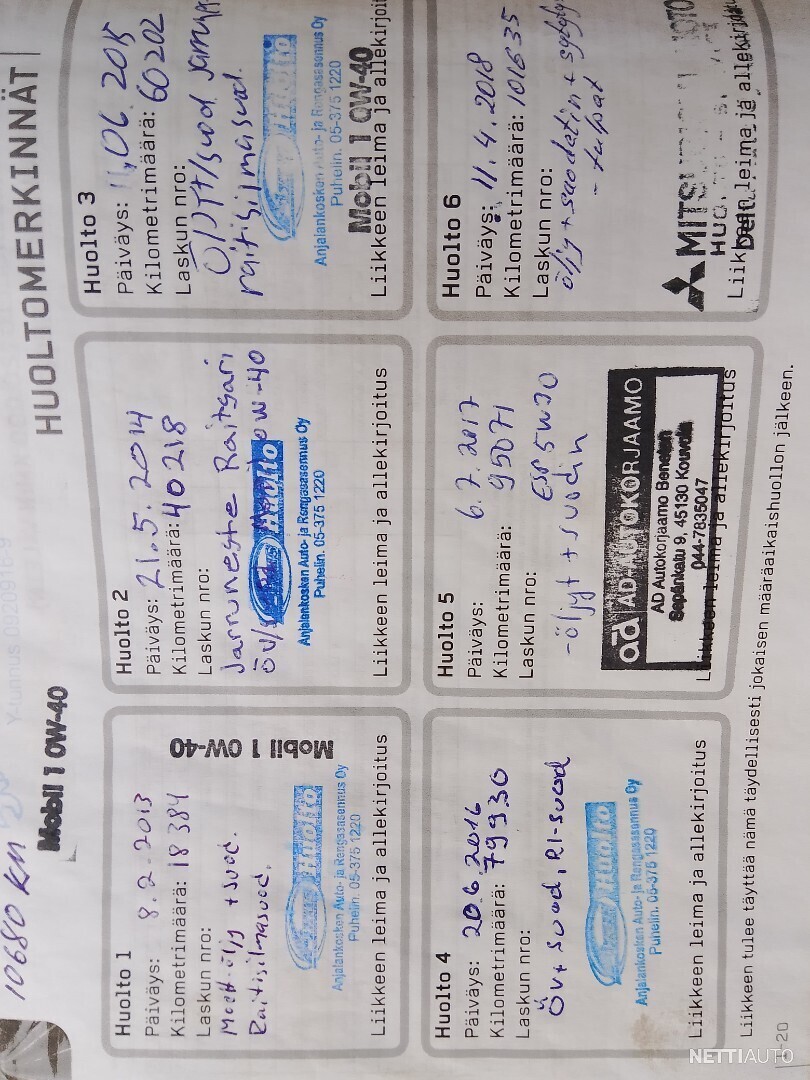 HUOLTOMERKINNÄT
10680 km
Mobil 1 0W-40
Huolto 1
Päiväys: 8.2.2013
Kilometrimäärä: 18384
Laskun nro:
Moott.öljy +suod.
Raitisilmasuod.
Mobil 1 0W-40
Huolto
Anjalankosken Auto- ja Rengasasennus Oy
Puhelin. 05-375 1220
Liikkeen leima ja allekirjoitus
Huolto 2
Päiväys: 21.5.2014
Kilometrimäärä: 40218
Laskun nro:
Jarruneste Raitisari
öv/ 0W-40
Huolto
Anjalankosken Auto- ja Rengasasennus Oy
Puhelin. 05-375 1220
Liikkeen leima ja allekirjoitus
Huolto 3
Päiväys: 11.06.2015
Kilometrimäärä: 60202
Laskun nro:
raitisilmasuod.
Huolto
Anjalankosken Auto- ja Rengasasennus Oy
Puhelin. 05-375 1220
Mobil 1 0W-40
Liikkeen leima ja allekirjoit
Huolto 4
Päiväys: 20.6.2016
Kilometrimäärä: 79930
Laskun nro:
Öv+suod, RI-suod
Huolto
Anjalankosken Auto- ja Rengasasennus Oy
Puhelin. 05-375 1220
Liikkeen leima ja allekirjoitus
Huolto 5
Päiväys: 6.7.2017
Kilometrimäärä: 95071
Laskun nro: ESP 5W30
-öljyt+suodin
ad AD-AUTOKORJAAMO
AD Autokorjaamo Benetan
Sepänkatu 9, 45130 Kouvola
044-7835047
Liikkeen leima ja allekirjoitus
Huolto 6
Päiväys: 11.4.2018
Kilometrimäärä: 101635
Laskun nro:
öljy+suodatin +
-tulpat
Liikkeen leima ja allekirjoitu
Liikkeen tulee täyttää nämä täydellisesti jokaisen määräaikaishuollon jälkeen.
1-20
NETTIAUTO